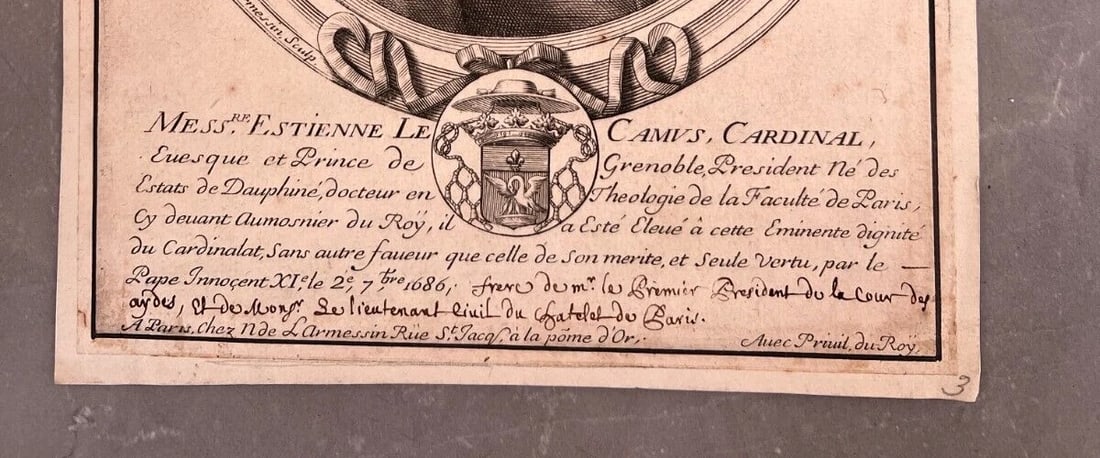 rmessin, Sculp
MESS.RE ESTIENNE LE CAMVS, CARDINAL,
Euesque et Prince de Grenoble, President Né des
Estats de Dauphiné, docteur en Theologie de la Faculté de Paris,
Cy deuant Aumosnier du Roÿ, il a Esté Eleué â cette Eminente dignité
du Cardinalat, Sans autre faueur que celle de Son merite, et Seule Vertu, par le
Pape Innoçent XI.e le 2.e, 7.bre 1686,. frere de mr. le Premier President de la Cour des
aydes, Et de Monsr. Le lieutenant Ciuil du Chatelet de Paris.
A Paris, Chez N de L'Armessin Rüe St. Jacq.s, à la põme d'Or,. Auec Priuil. du Roÿ,
3